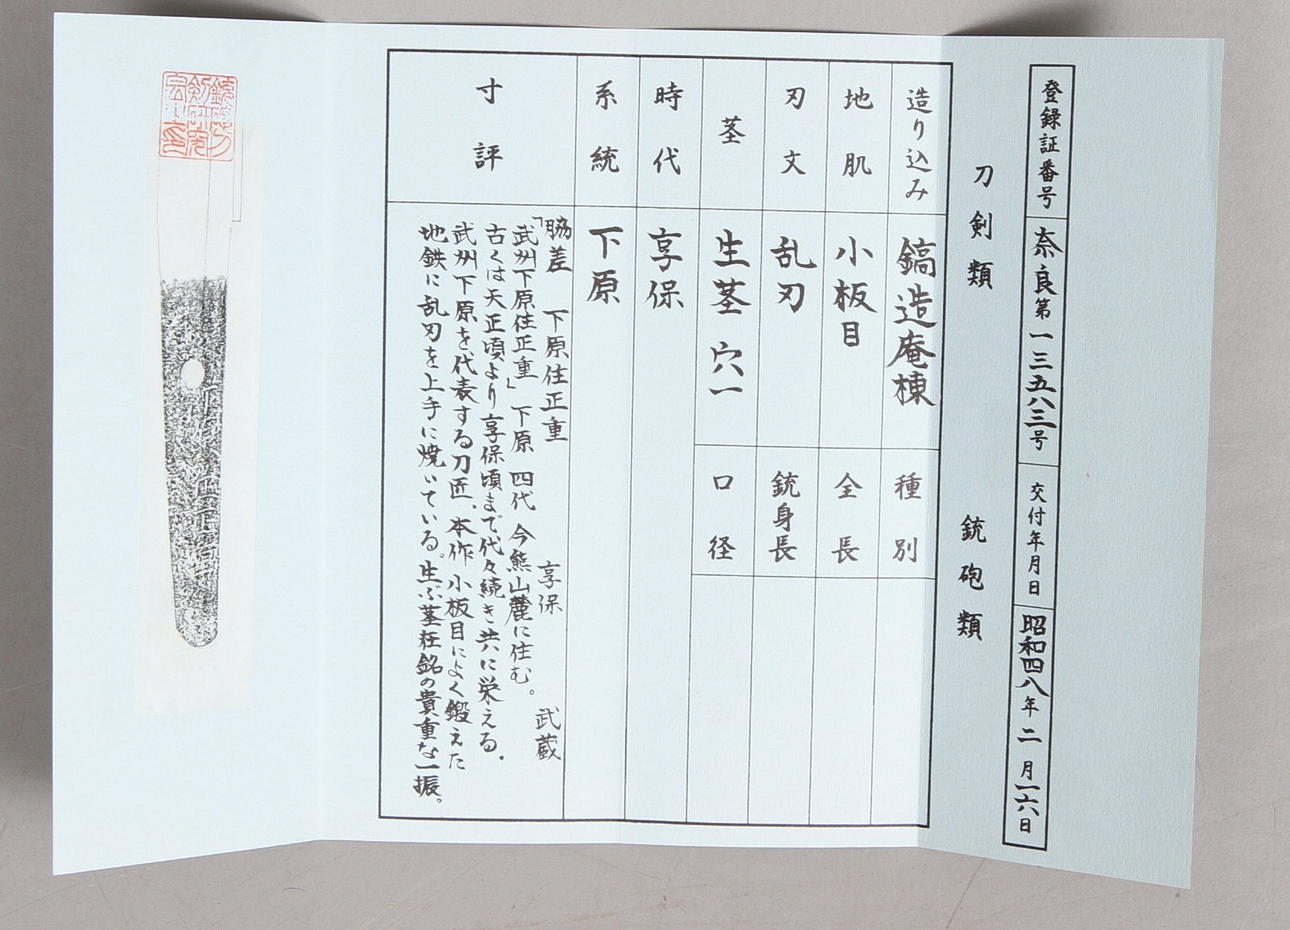 登録証番号 奈良第一三五八三号 交付年月日 昭和四八年二月一六日
刀剣類 銃砲類
造り込み 鎬造庵棟 種別
地肌 小板目 全長
刃文 乱刃 銃身長
茎 生茎 穴一 口径
時代 享保
系統 下原
寸評
脇差 下原住正重 享保 武蔵
「武州下原住正重」 下原 四代 今熊山麓に住む。
古くは天正頃より享保頃まで代々続き共に栄える.
武州下原を代表する刀匠.本作 小板目によく鍛えた
地鉄に乱刃を上手に焼いている。生ぶ茎在銘の貴重な一振。